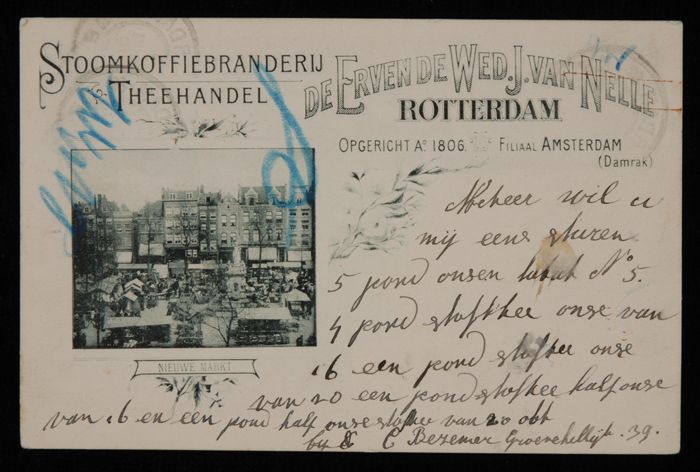 STOOMKOFFIEBRANDERIJ
& THEEHANDEL
DE ERVEN DE WED. J. VAN NELLE
ROTTERDAM
OPGERICHT Aº 1806. FILIAAL AMSTERDAM
(Damrak)
Mcheer wil u
mij eens sturen
5 pond onsen tabak Nº 5.
4 pond stofthee onse van
16 een pond stofthee onse
van 20 een pond stofthee half onse
van 16 en een pond half onse stofthee van 20 obt
bij C Bezemer 39.
NIEUWE MARKT